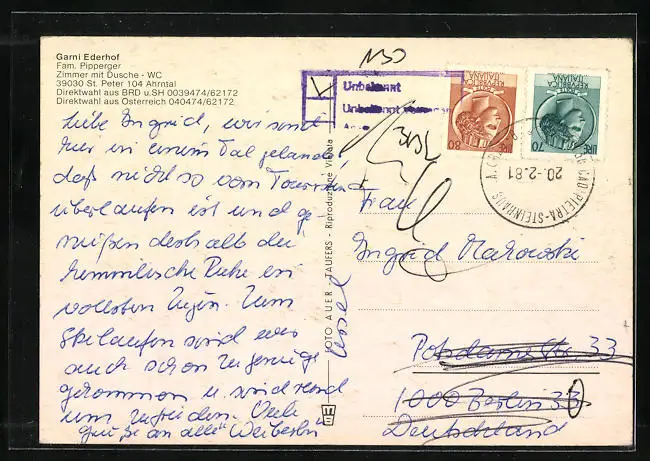 Garni Ederhof
Fam. Pipperger
Zimmer mit Dusche - WC
39030 St. Peter 104 Ahrntal
Direktwahl aus BRD u.SH 0039474/62172
Direktwahl aus Österreich 040474/62172
Liebe Ingrid, wir sind
hier in einem Tal gelandet,
daß nicht so vom Tourismus
überlaufen ist und ge-
nießen deshalb die
himmlische Ruhe in
vollsten Zügen. Zum
Skilaufen sind wir
auch schon zu genüge
gekommen u. sind rund
um zufrieden. Viele
Grüße an alle "Weiberln"
FOTO AUER - TAUFERS - Riproduzione Vietata
Unbekannt
Unbekannt
REPUBBLICA
ITALIANA
LIRE 80
REPUBBLICA
ITALIANA
LIRE 70
CADIPIETRA-STEINHAUS
20-2.81
Frau
Ingrid Makowski
Potsdamer Str. 33
1000 Berlin 33
Deutschland